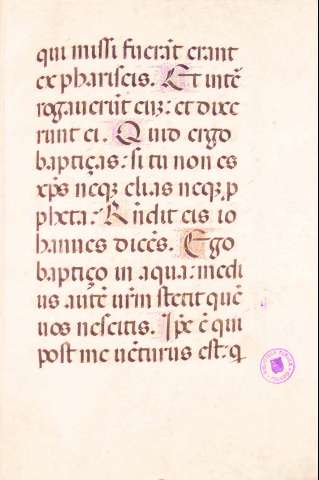 qui missi fuerāt erant
ex phariseis. Et intē
rogaverūt eū: et dixe
runt ei. Quid ergo
baptiças: si tu non es
xp̄s neqȝ elias neqȝ ꝓ
pheta: Rñdit eis io
hannes dicēs. Ego
baptiço in aqua: medi
us autē vr̄m stetit quē
vos nescitis. Ip̄e ē qui
post me vēturus est: q̄